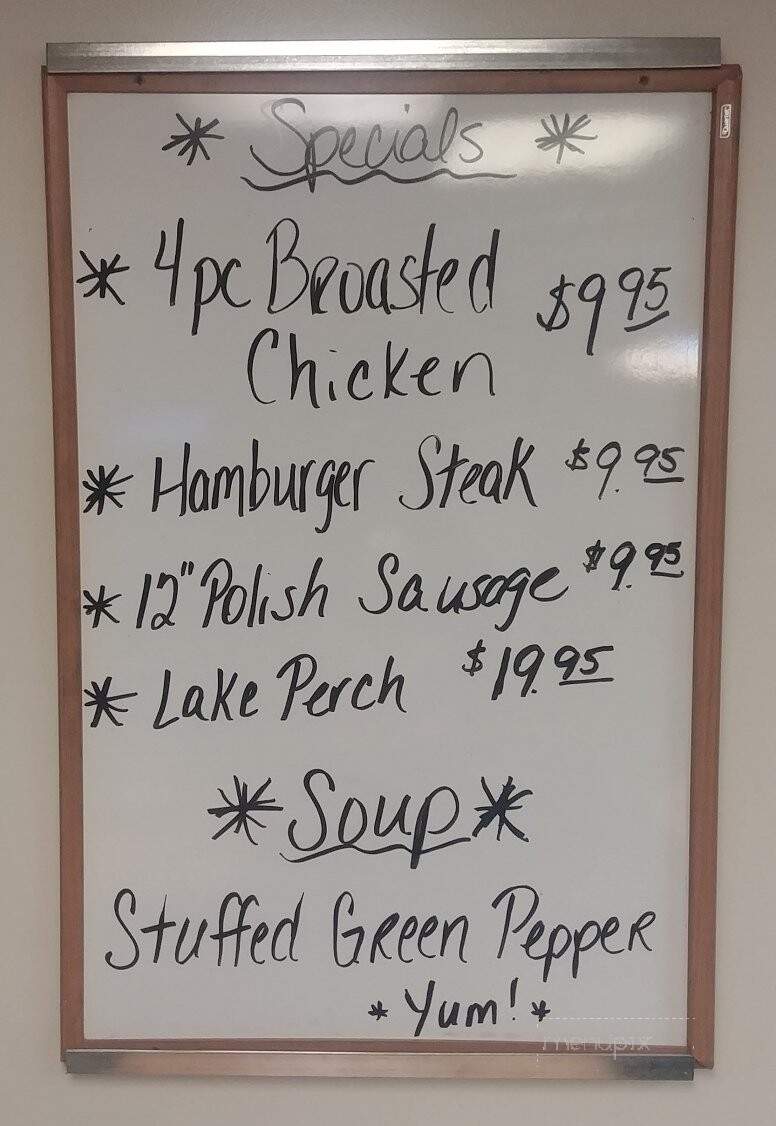 * Specials *
* 4pc Broasted $9 95
Chicken
* Hamburger Steak $9.95
* 12" Polish Sausage $9.95
* Lake Perch $19.95
* Soup *
Stuffed Green Pepper
* Yum! *
menupix
Quartet